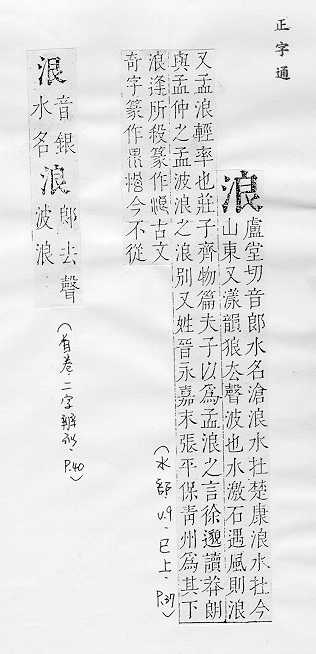 正字通
浪 盧堂切音郎水名滄浪水在楚康浪水在今
山東又漾韻狼去聲波也水激石遇風則浪
又孟浪輕率也莊子齊物篇夫子以爲孟浪之言徐邈讀莽朗
與孟仲之孟波浪之浪別又姓晉永嘉末張平保青州爲其下
浪逢所殺篆作古文
奇字篆作今不從
(水部 V.9.巳上.P.37)
泿 音銀
水名
浪 郎去聲
波浪
(首卷二字辨似.P.40)